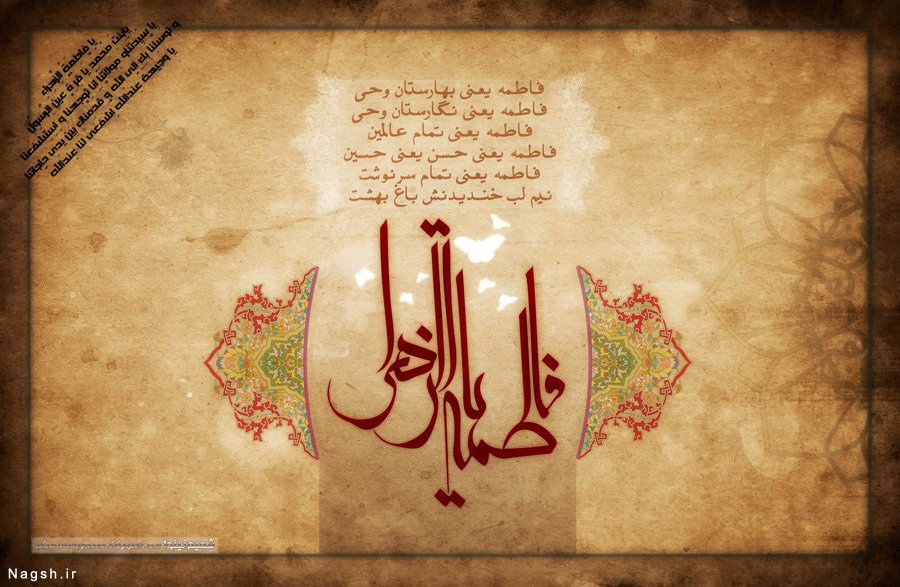 يا فاطمة الزهراء
يابنت محمد يا قرة عين الرسول
يا سيدتنا و مولاتنا انا توجهنا و استشفعنا
و توسلنا بك الى الله و قدمناك بين يدى حاجاتنا
يا وجيهة عندالله اشفعى لنا عندالله
فاطمه یعنی بهارستان وحی
فاطمه یعنی نگارستان وحی
فاطمه یعنی تمام عالمین
فاطمه یعنی حسن یعنی حسین
فاطمه یعنی تمام سرنوشت
نیم لب خندیدنش باغ بهشت
یا فاطمة الزهرا
شمیم نینوا
Nagsh.ir